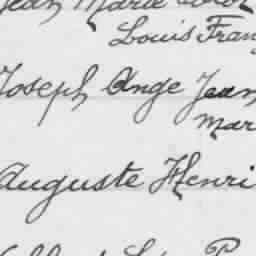 Jean Marie
Louis Fran
Joseph Ange Jean
Mar
Auguste Henri